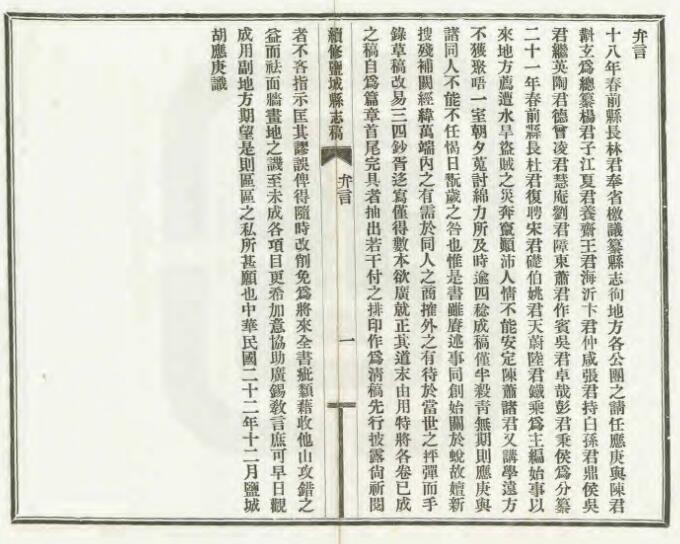 弁言
十八年春前縣長林君奉省檄議纂縣志徇地方各公團之請任應庚與陳君
斠玄爲總纂楊君子江夏君養齋王君海沂卞君仲咸張君持白孫君鼎侯吳
君繼英陶君德曾凌君慧庵劉君障東蕭君作賓吳君卓哉彭君秉侯爲分纂
二十一年春前縣長杜君復聘宋君礎伯姚君天蔚陸君鐵乘爲主編始事以
來地方薦遭水旱盜賊之災奔竄顚沛人情不能安定陳蕭諸君又講學遠方
不獲聚唔一室朝夕蒐討綿力所及時逾四稔成稿僅半殺靑無期則應庚與
諸同人不能不任愒日翫歲之咎也惟是書雖賡述事同創始關於蛻故嬗新
搜殘補闕經緯萬端內之有需於同人之商搉外之有待於當世之抨彈而手
錄草稿改易三四鈔胥迻寫僅得數本欲廣就正其道末由用特將各卷已成
之稿自爲篇章首尾完具者抽出若干付之排印作爲清稿先行披露尙祈閱
續修鹽城縣志稿 弁言 一
者不吝指示匡其謬誤俾得隨時改削免爲將來全書疵纇藉收他山攻錯之
益而祛面牆畫地之譏至未成各項目更希加意協助廣錫敎言庶可早日觀
成用副地方期望是則區區之私所甚願也中華民國二十二年十二月鹽城
胡應庚識